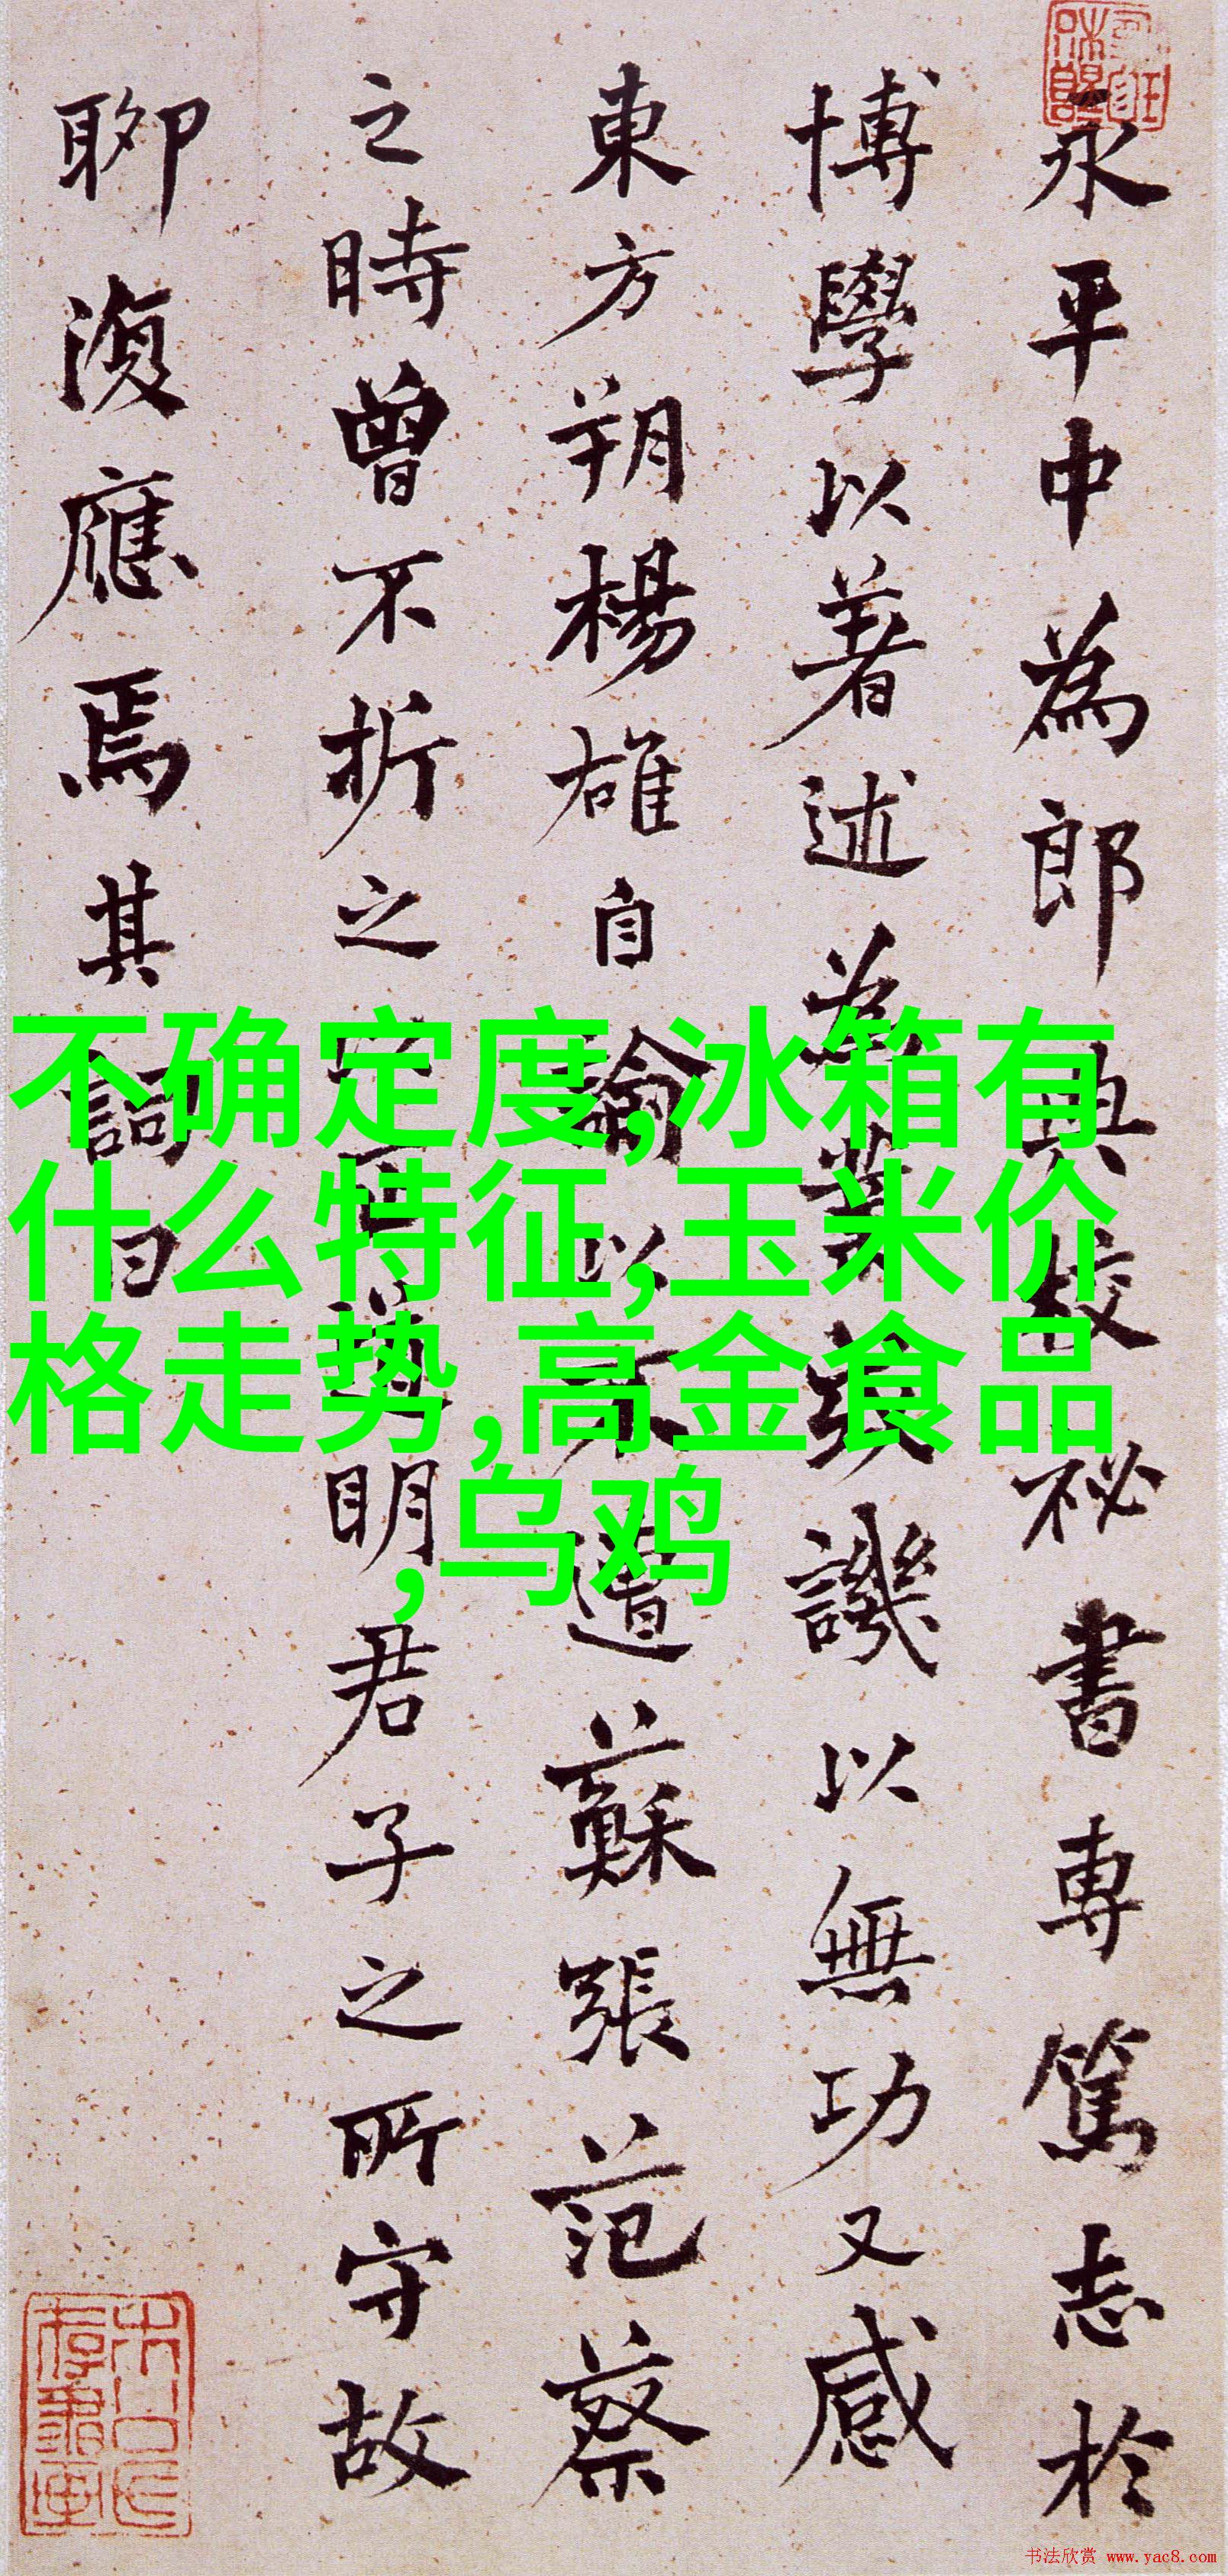 永平中為郎典校祕書專篤志於
博學以著述為業或譏以無功又感
東方朔楊雄自諭以不遭蘇張范蔡
之時曾不折之以正道明君子之所守故
聊復應焉其詞曰
不确定度,冰箱有
什么特征,玉米价
格走势,高金食品
,乌鸡
书法欣赏 www.yac8.com